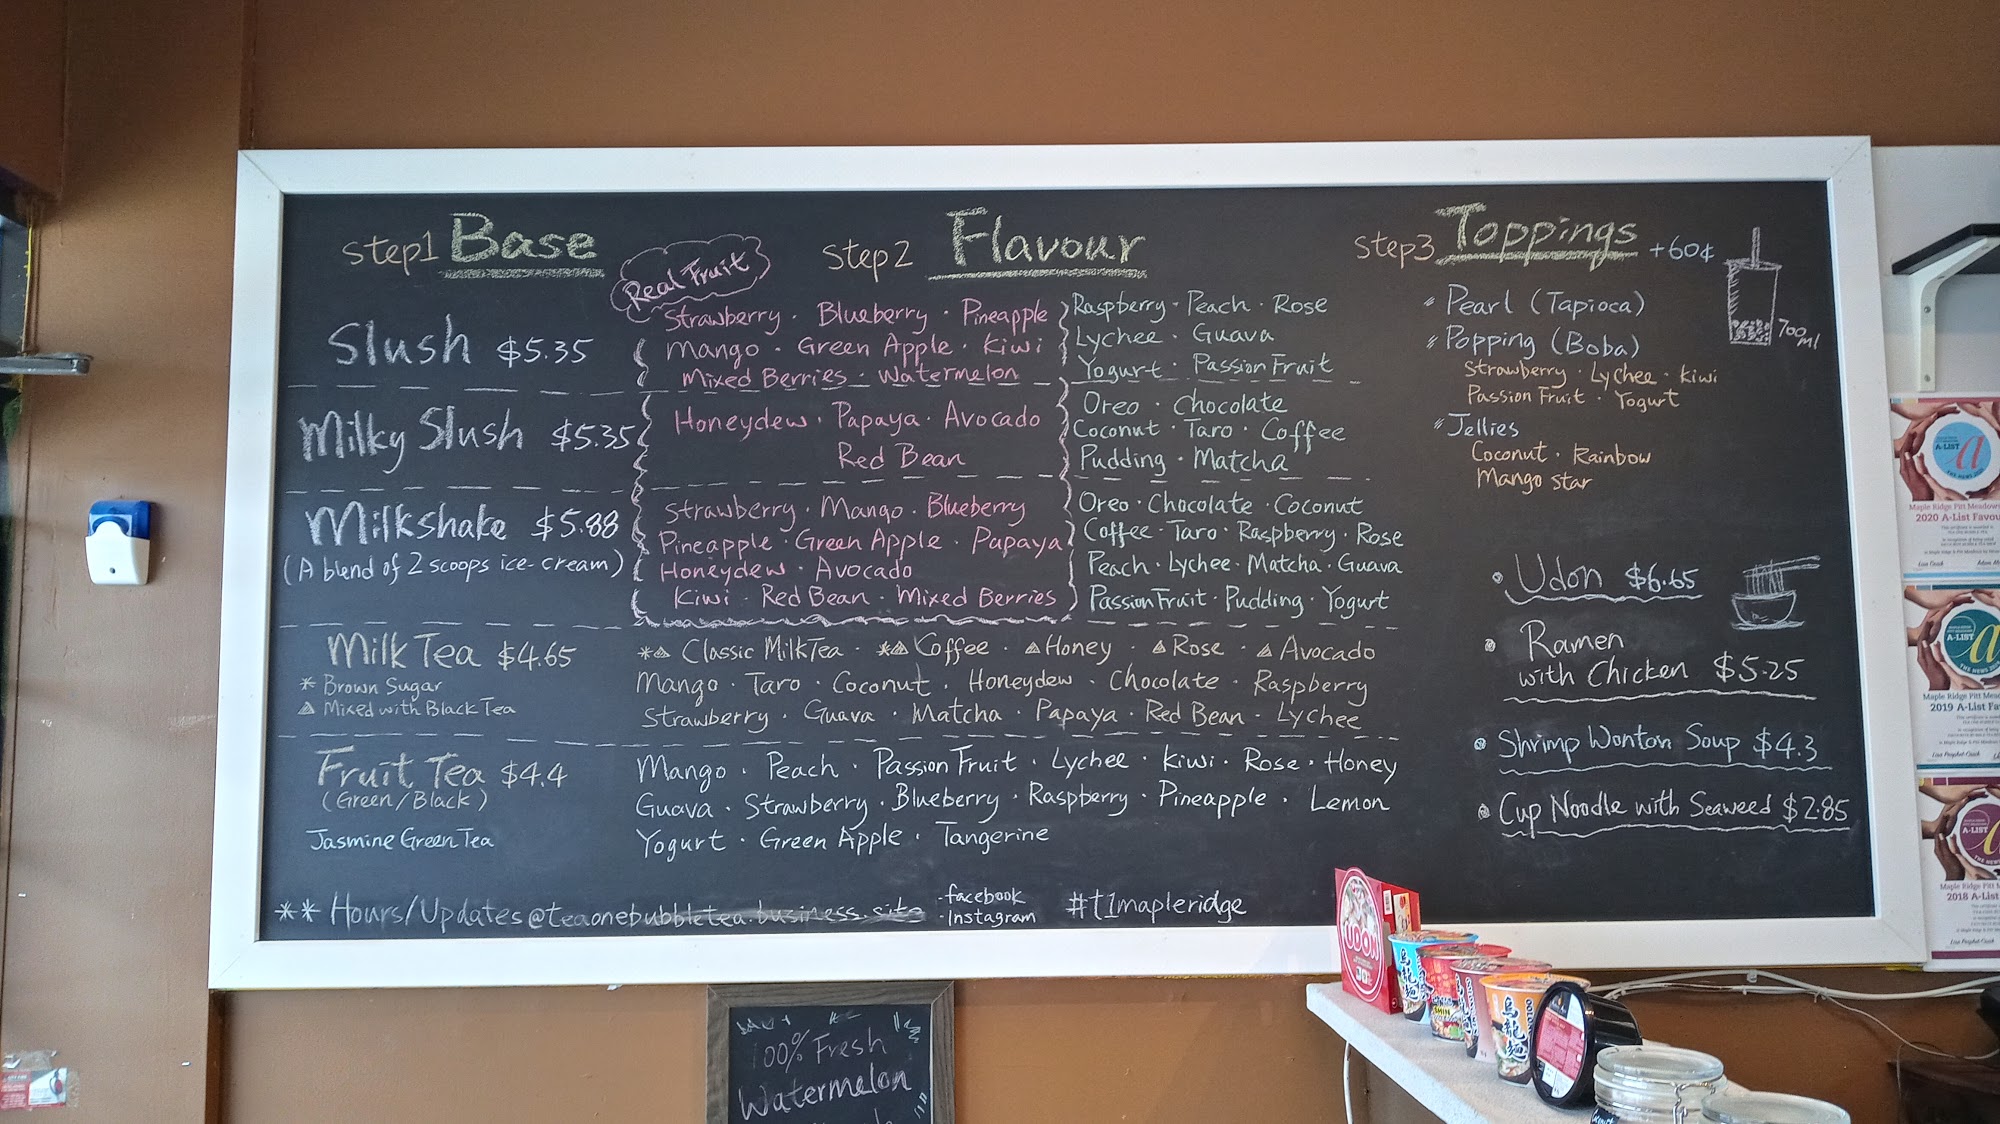 step1 Base
Real Fruit
step2 Flavour
step3 Toppings +60¢
Slush $5.35
Strawberry · Blueberry · Pineapple
Mango · Green Apple · Kiwi
Mixed Berries · Watermelon
Raspberry · Peach · Rose
Lychee · Guava
Yogurt · Passion Fruit
Milky Slush $5.35
Honeydew · Papaya · Avocado
Red Bean
Oreo · Chocolate
Coconut · Taro · Coffee
Pudding · Matcha
Milkshake $5.88
(A blend of 2 scoops ice-cream)
Strawberry · Mango · Blueberry
Pineapple · Green Apple · Papaya
Honeydew · Avocado
Kiwi · Red Bean · Mixed Berries
Oreo · Chocolate · Coconut
Coffee · Taro · Raspberry · Rose
Peach · Lychee · Matcha · Guava
Passion Fruit · Pudding · Yogurt
Milk Tea $4.65
* Brown Sugar
△ Mixed with Black Tea
*△ Classic Milk Tea · *△ Coffee · △ Honey · △ Rose · △ Avocado
Mango · Taro · Coconut · Honeydew · Chocolate · Raspberry
Strawberry · Guava · Matcha · Papaya · Red Bean · Lychee
Fruit Tea $4.4
(Green/Black)
Jasmine Green Tea
Mango · Peach · Passion Fruit · Lychee · Kiwi · Rose · Honey
Guava · Strawberry · Blueberry · Raspberry · Pineapple · Lemon
Yogurt · Green Apple · Tangerine
** Hours/Updates @teaonebubbletea.business.site
·facebook
·Instagram
#t1mapleridge
Pearl (Tapioca)
Popping (Boba)
Strawberry · Lychee · Kiwi
Passion Fruit · Yogurt
Jellies
Coconut · Rainbow
Mango star
700 ml
• Udon $6.65
• Ramen
with Chicken $5.25
• Shrimp Wonton Soup $4.3
• Cup Noodle with Seaweed $2.85
A-LIST
a
Maple Ridge Pitt Meadows
2020 A-List Favou
A-LIST
Maple Ridge Pitt Mea
2019 A-List Fa
A-LIST
Maple Ridge Pitt M
2018 A-Lis
UDON
烏龍麺
烏龍麺
100% Fresh
Watermelon